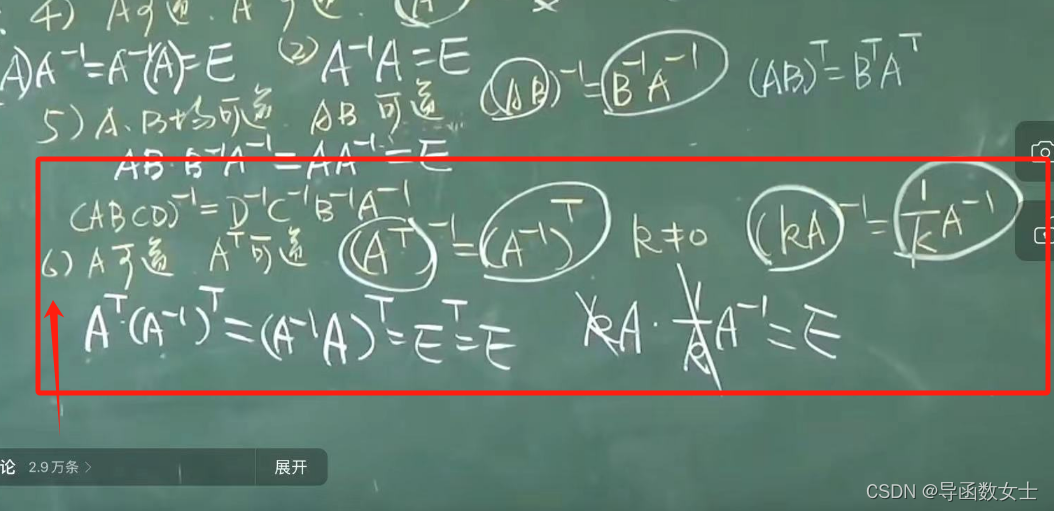 4) A可逆. A
A)A⁻¹=A⁻¹(A)=E (2) A⁻¹A=E (AB)⁻¹=B⁻¹A⁻¹ (AB)ᵀ=BᵀAᵀ
5) A、B均可逆 AB可逆
AB·B⁻¹A⁻¹=AA⁻¹=E
(ABCD)⁻¹=D⁻¹C⁻¹B⁻¹A⁻¹
6) A可逆 Aᵀ可逆 (Aᵀ)⁻¹=(A⁻¹)ᵀ k≠0 (kA)⁻¹=1/k A⁻¹
Aᵀ·(A⁻¹)ᵀ=(A⁻¹A)ᵀ=Eᵀ=E kA·1/k A⁻¹=E
论 2.9万条 > 展开
CSDN @导函数女士